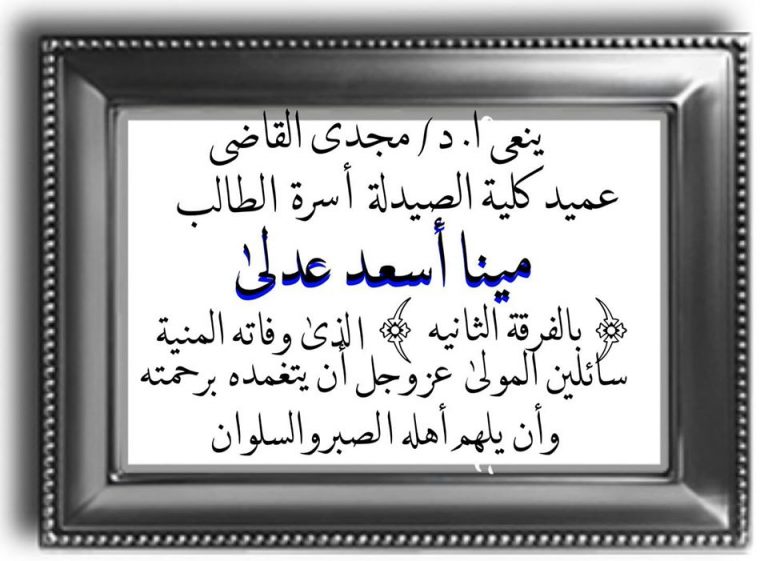 ينعى أ.د/ مجدى القاضى
عميد كلية الصيدلة أسرة الطالب
مينا أسعد عدلىٰ
﴿ بالفرقة الثانيه ﴾ الذىٰ وفاته المنية
سائلين المولىٰ عزوجل أن يتغمده برحمته
وأن يلهم أهله الصبروالسلوان